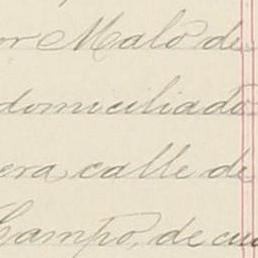 or Malo de
domiciliado
era calle de
Campo, de cua